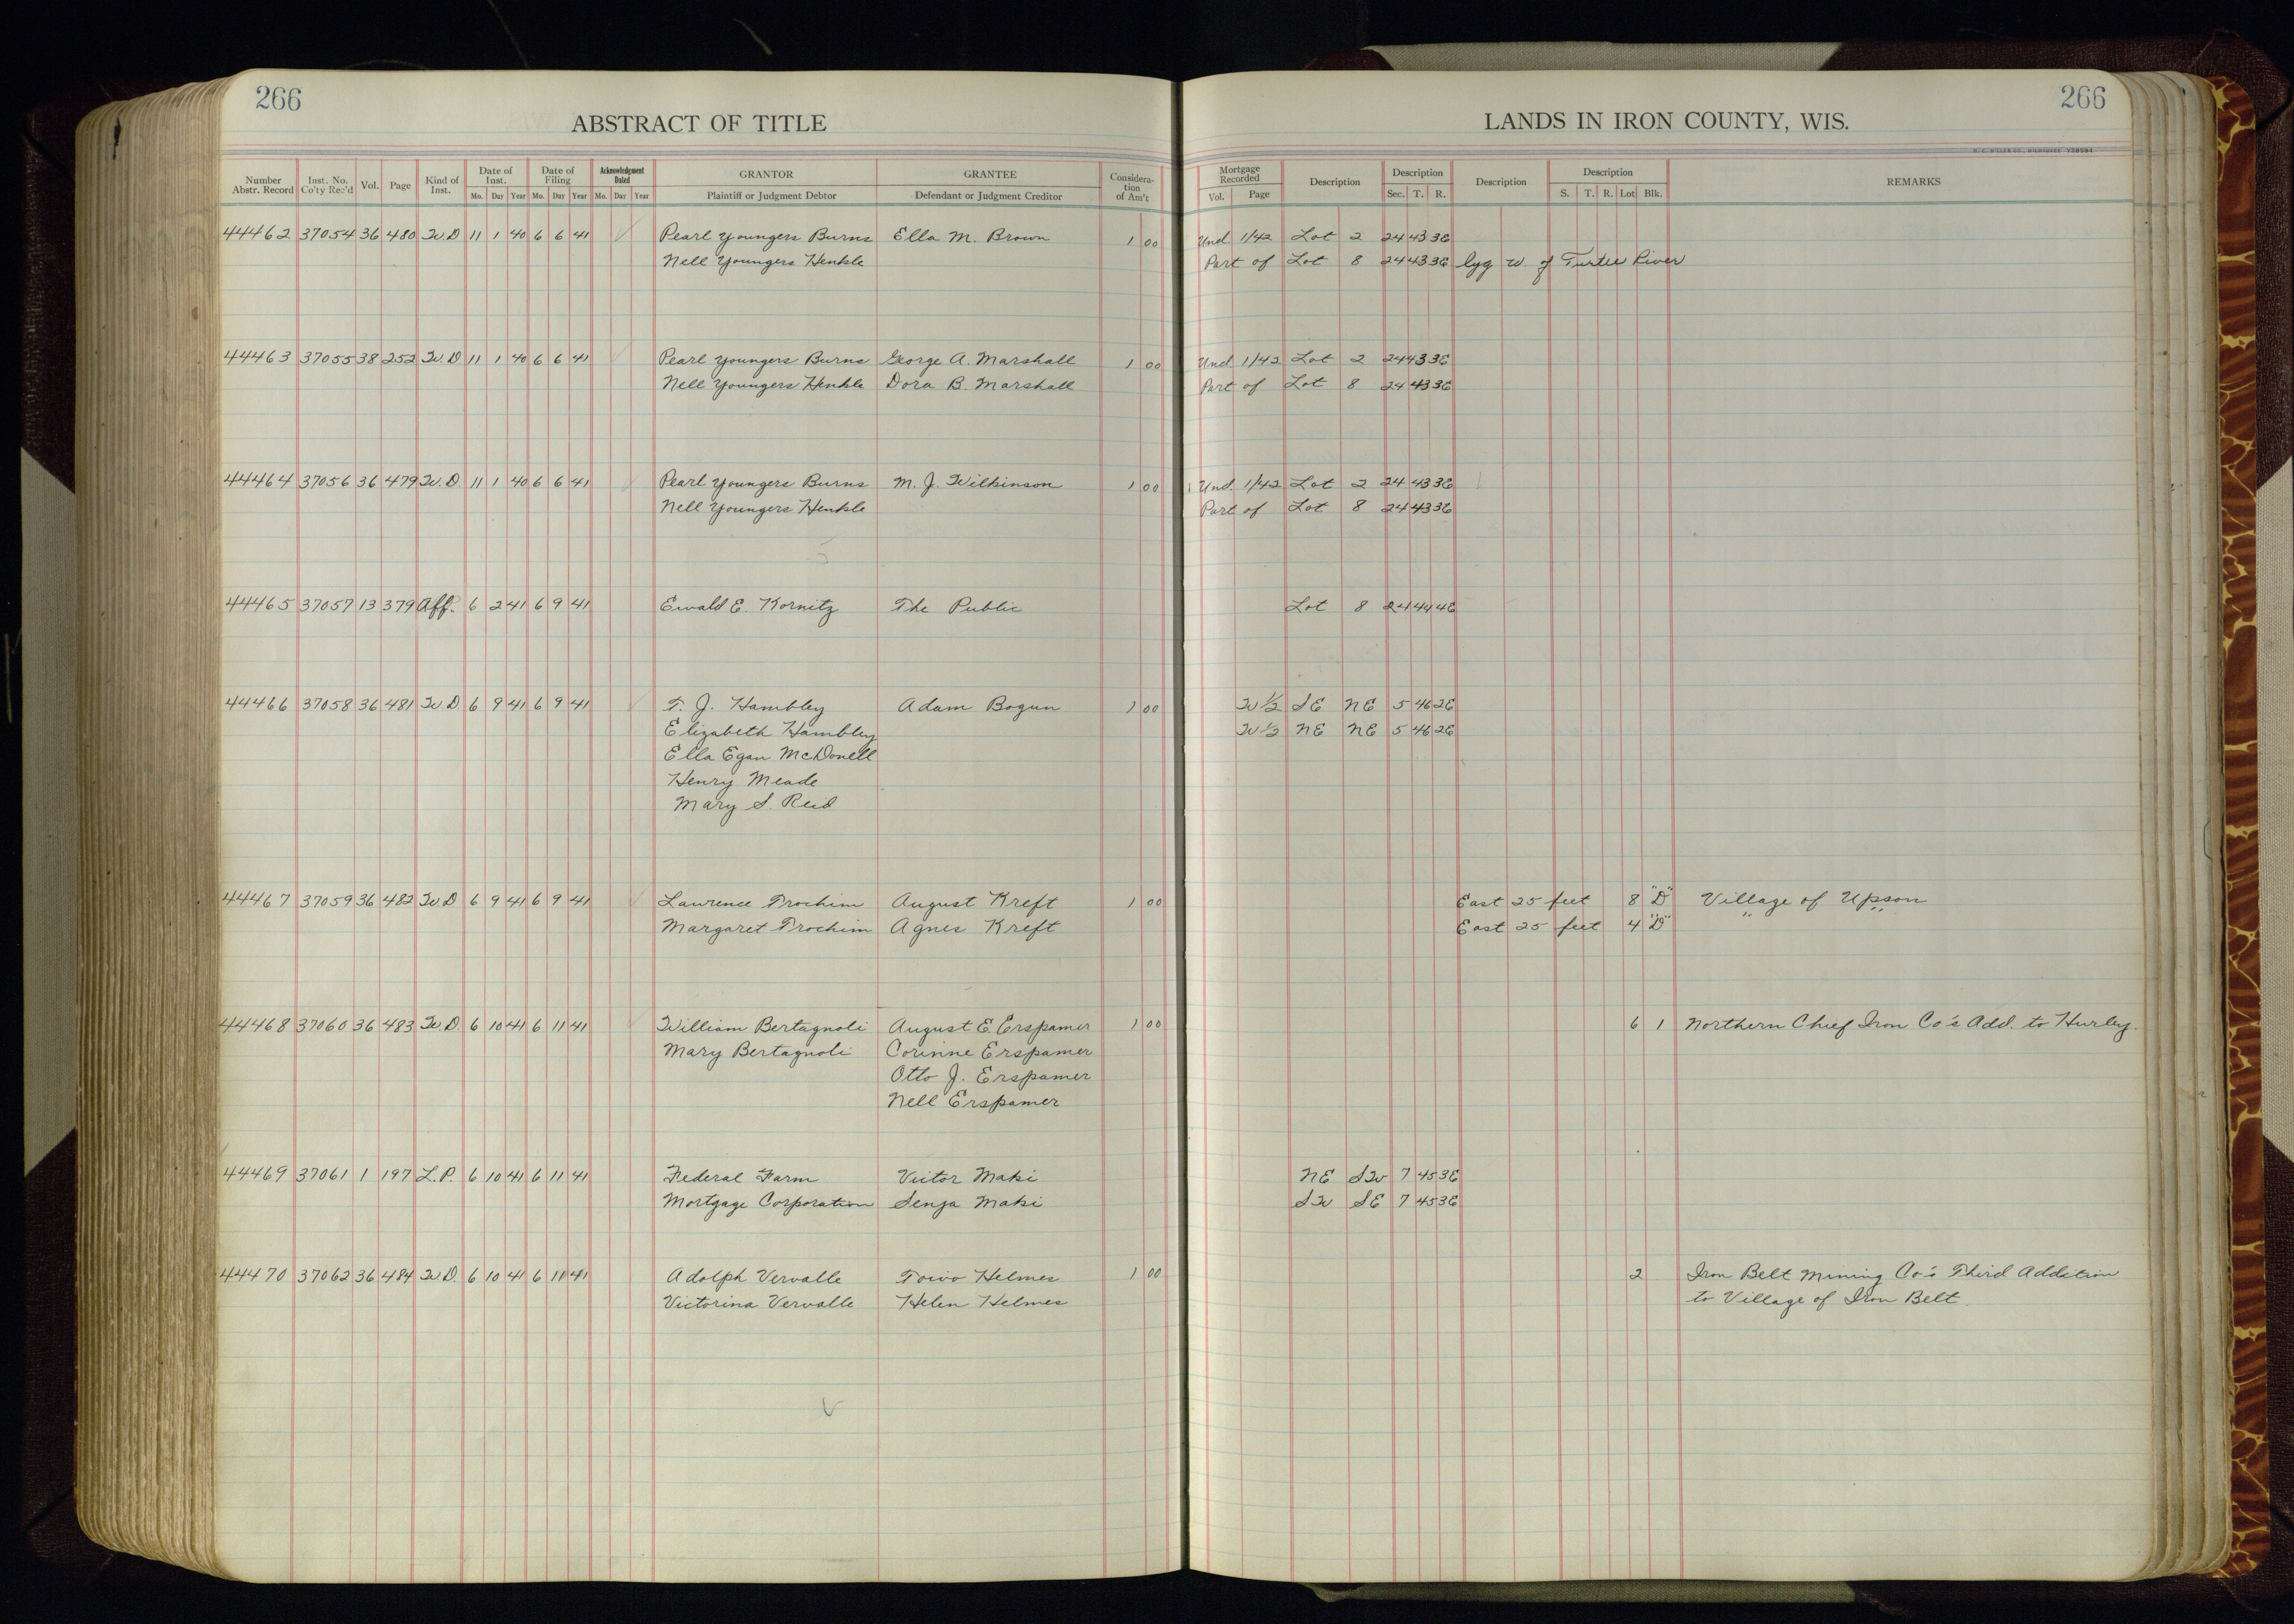 266
ABSTRACT OF TITLE
Number Abstr. Record Inst. No. Co'ty Rec'd Vol. Page Kind of Inst. Date of Inst. Mo. Day Year Date of Filing Mo. Day Year Acknowledgment Dated Mo. Day Year GRANTOR Plaintiff or Judgment Debtor GRANTEE Defendant or Judgment Creditor Considera-tion of Am't
44462 37054 36 480 W.D 11 1 40 6 6 41 Pearl Youngers Burns Ella M. Brown 1 00
Nell Youngers Henkle
44463 37055 38 252 W.D 11 1 40 6 6 41 Pearl Youngers Burns George A. Marshall 1 00
Nell Youngers Henkle Dora B. Marshall
44464 37056 36 479 W.D. 11 1 40 6 6 41 Pearl Youngers Burns M. J. Wilkinson 1 00
Nell Youngers Henkle
44465 37057 13 379 Aff. 6 2 41 6 9 41 Ewald E. Kornitz The Public
44466 37058 36 481 W.D. 6 9 41 6 9 41 T. J. Hambley Adam Bogun 1 00
Elizabeth Hambley
Ella Egan McDonell
Henry Meade
Mary S. Reid
44467 37059 36 482 W.D 6 9 41 6 9 41 Lawrence Trochim August Kreft 1 00
Margaret Trochim Agnes Kreft
44468 37060 36 483 W.D. 6 10 41 6 11 41 William Bertagnoli August E. Erspamer 1 00
Mary Bertagnoli Corinne Erspamer
Otto J. Erspamer
Nell Erspamer
44469 37061 1 197 L.P. 6 10 41 6 11 41 Federal Farm Victor Maki
Mortgage Corporation Senja Maki
44470 37062 36 484 W.D. 6 10 41 6 11 41 Adolph Vervalle Toivo Helmes 1 00
Victorina Vervalle Helen Helmes
266
LANDS IN IRON COUNTY, WIS.
Mortgage Recorded Vol. Page Description Description Sec. T. R. Description Description S. T. R. Lot Blk. REMARKS
Und. 1/42 Lot 2 24 43 3E
Part of Lot 8 24 43 3E lyg w. of Turtle River
Und. 1/42 Lot 2 24 43 3E
Part of Lot 8 24 43 3E
Und. 1/42 Lot 2 24 43 3E
Part of Lot 8 24 43 3E
Lot 8 24 44 4E
W 1/2 SE NE 5 46 2E
W 1/2 NE NE 5 46 2E
East 25 feet 8 "D" Village of Upson
East 25 feet 4 "D" " "
6 1 Northern Chief Iron Co's Add. to Hurley.
NE SW 7 45 3E
SW SE 7 45 3E
2 Iron Belt Mining Co's Third Addition
to Village of Iron Belt.